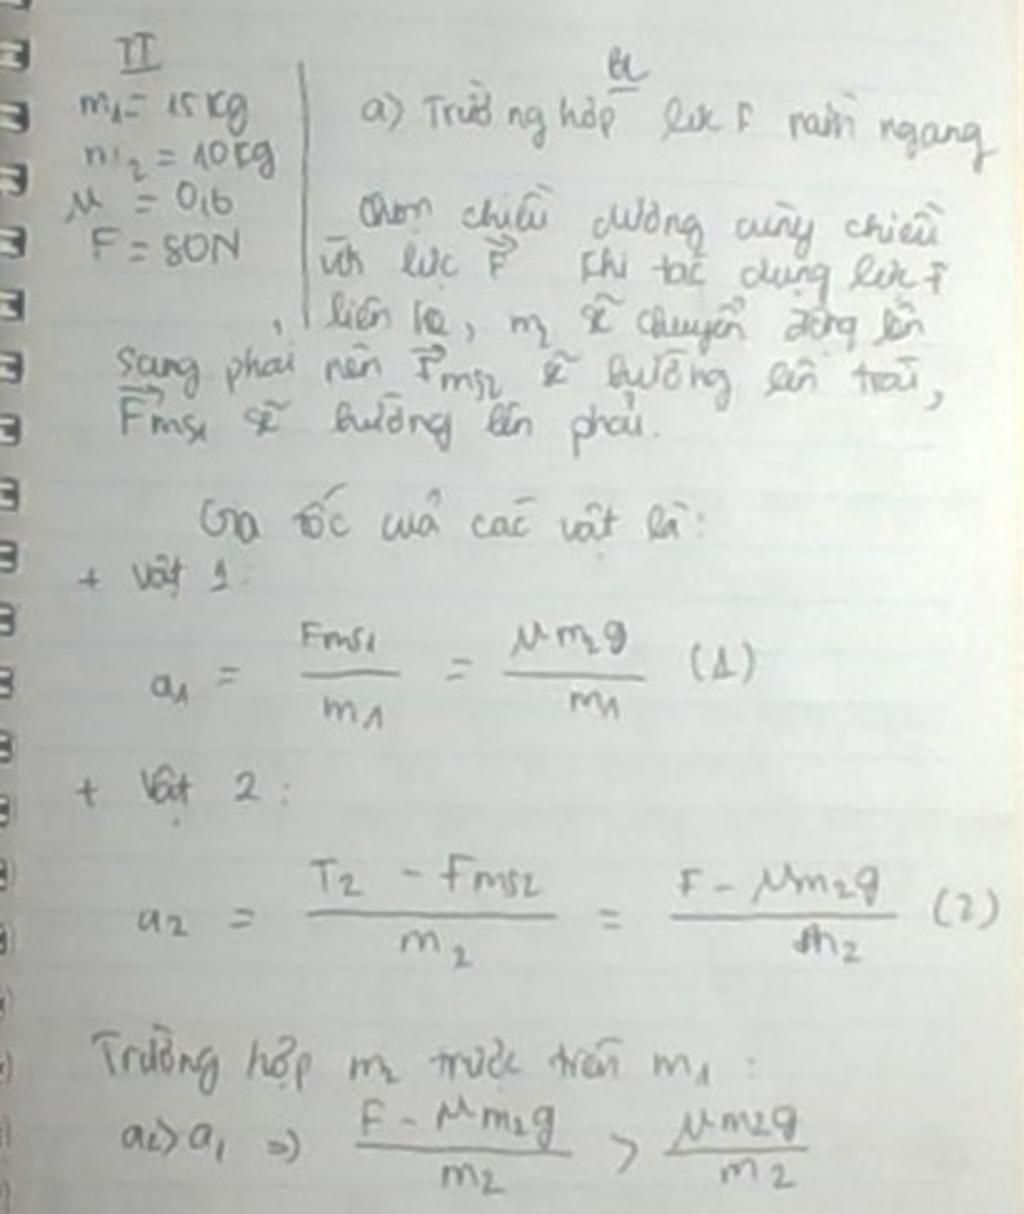 II
BL
m₁ = 15 kg
a) Trường hợp lực F nằm ngang
m₂ = 10 kg
μ = 0,6
Chọn chiều dương cùng chiều
F = 80N
với lực F⃗ Khi tác dụng lực F⃗
liên hệ, m₂ sẽ chuyển động lên
sang phải nên F⃗ms2 sẽ hướng lên trái,
F⃗ms1 sẽ hướng lên phải.
Gia tốc của các vật là:
+ Vật 1:
a₁ = Fms1 / m₁ = μm₂g / m₁ (1)
+ Vật 2:
a₂ = (T₂ - Fms2) / m₂ = (F - μm₂g) / m₂ (2)
Trường hợp m₂ trước trên m₁:
a₂ > a₁ => (F - μm₂g) / m₂ > μm₂g / m₂